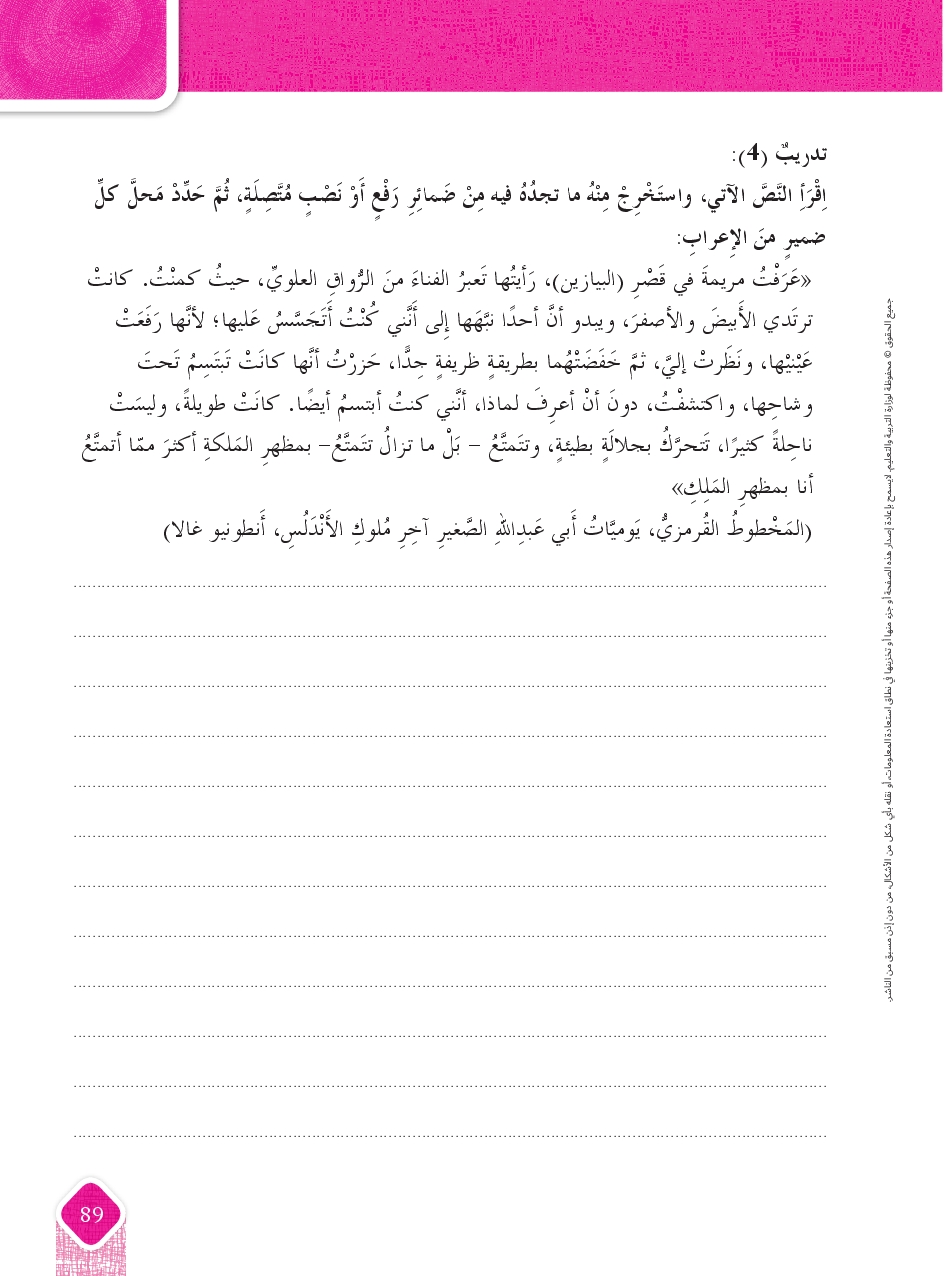 تدريبٌ (4):
اِقْرَأِ النَّصَّ الآتي، واستَخْرِجْ مِنْهُ ما تجدُهُ فيه مِنْ ضَمائِرِ رَفْعٍ أَوْ نَصْبٍ مُتَّصِلَةٍ، ثُمَّ حَدِّدْ مَحلَّ كلِّ
ضميرٍ منَ الإِعرابِ:
«عَرَفْتُ مريمةَ في قَصْرِ (البيازين)، رَأيتُها تَعبرُ الفناءَ منَ الرُّواقِ العلويِّ، حيثُ كمنْتُ. كانتْ
ترتَدي الأَبيضَ والأصفرَ، ويبدو أنَّ أحدًا نبَّهَها إلى أَنَّني كُنْتُ أَتَجَسَّسُ عَليها؛ لأنَّها رَفَعَتْ
عَيْنيْها، ونَظَرتْ إليَّ، ثمَّ خَفَضَتْهُما بطريقةٍ ظريفةٍ جدًّا، حَزرْتُ أنَّها كانَتْ تَبْتَسِمُ تَحتَ
وشاحِها، واكتشفْتُ، دونَ أنْ أعرِفَ لماذا، أنَّني كنتُ أبتسمُ أيضًا. كانَتْ طويلةً، وليسَتْ
ناحِلةً كثيرًا، تَتحرَّكُ بجلالَةٍ بطيئةٍ، وتتَمتَّعُ – بَلْ ما تزالُ تتَمتَّعُ– بمظهرِ المَلكةِ أكثرَ ممّا أتمتَّعُ
أنا بمظهرِ المَلِكِ»
(المَخْطوطُ القُرمزيُّ، يَوميَّاتُ أَبي عَبدِاللهِ الصَّغيرِ آخِرِ مُلوكِ الأَنْدَلُسِ، أَنطونيو غالا)
جميع الحقوق © محفوظة لوزارة التربية والتعليم. لايسمح بإعادة إصدار هذه الصفحة أو جزء منها أو تخزينها في نطاق استعادة المعلومات، أو نقله بأي شكل من الأشكال، من دون إذن مسبق من الناشر.
89